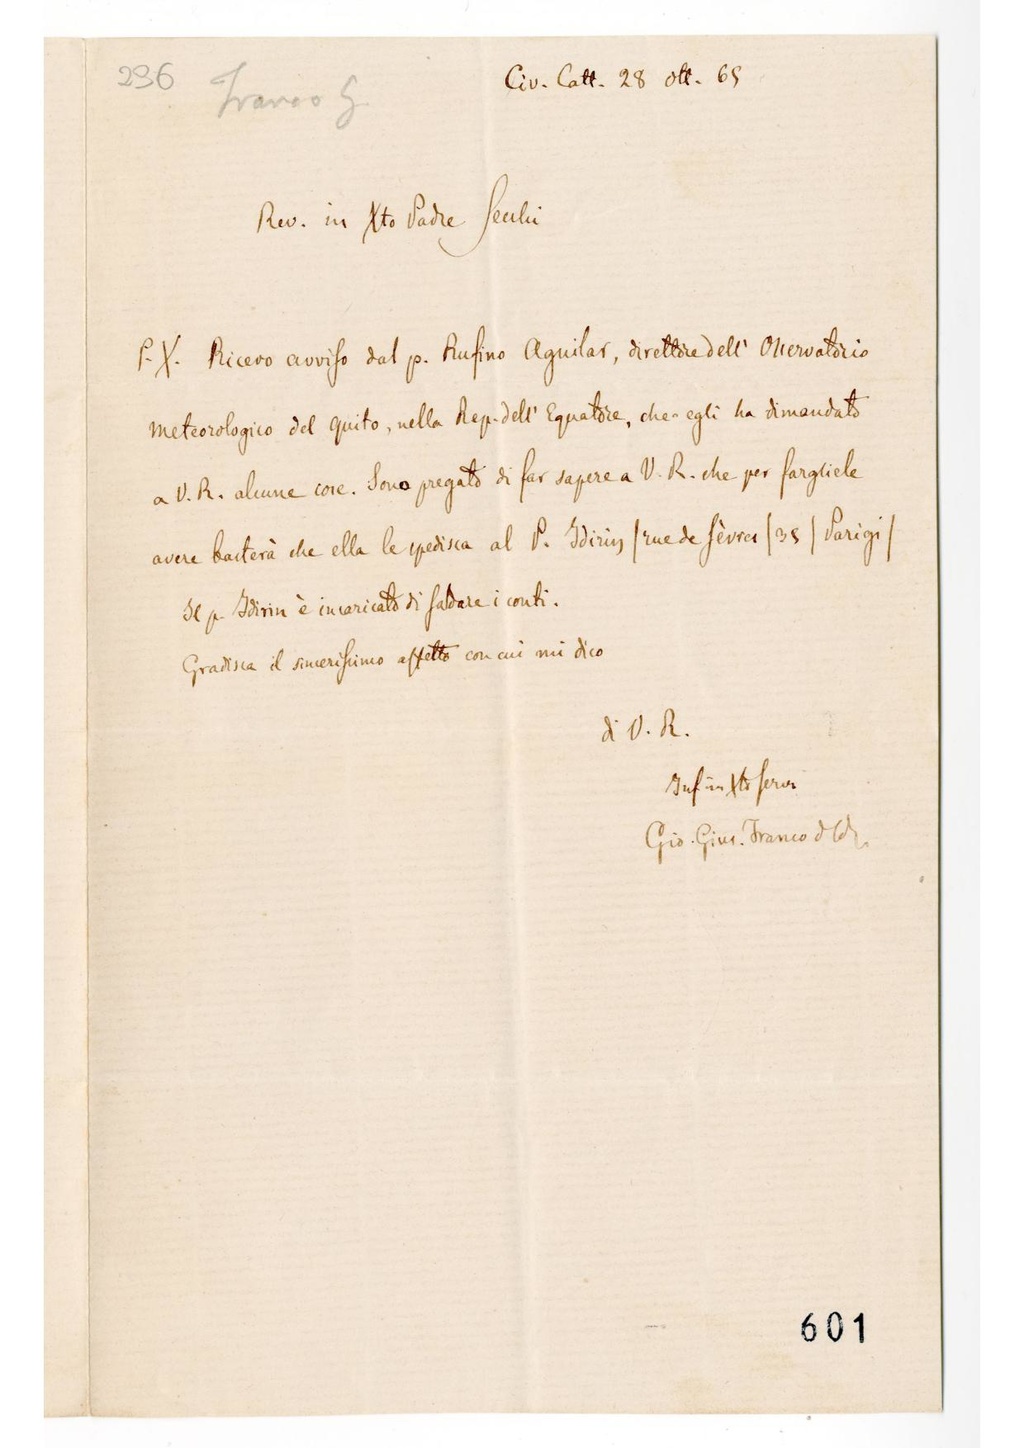 236 Franco G.
Civ. Catt. 28 ott. 65
Rev. in Xto Padre Secchi
P. X. Ricevo avviso dal p. Rufino Aguilar, direttore dell' Osservatorio
meteorologico del Quito, nella Rep. dell' Equatore, che egli ha dimandato
a V. R. alcune cose. Sono pregato di far sapere a V. R. che per fargliele
avere basterà che ella le spedisca al P. Idirin / rue de Sèvres / 35 / Parigi /
Il p. Idirin è incaricato di saldare i conti.
Gradisca il sincerissimo affetto con cui mi dico
di V. R.
Inf in Xto servo
Gio. Gius. Franco d
601